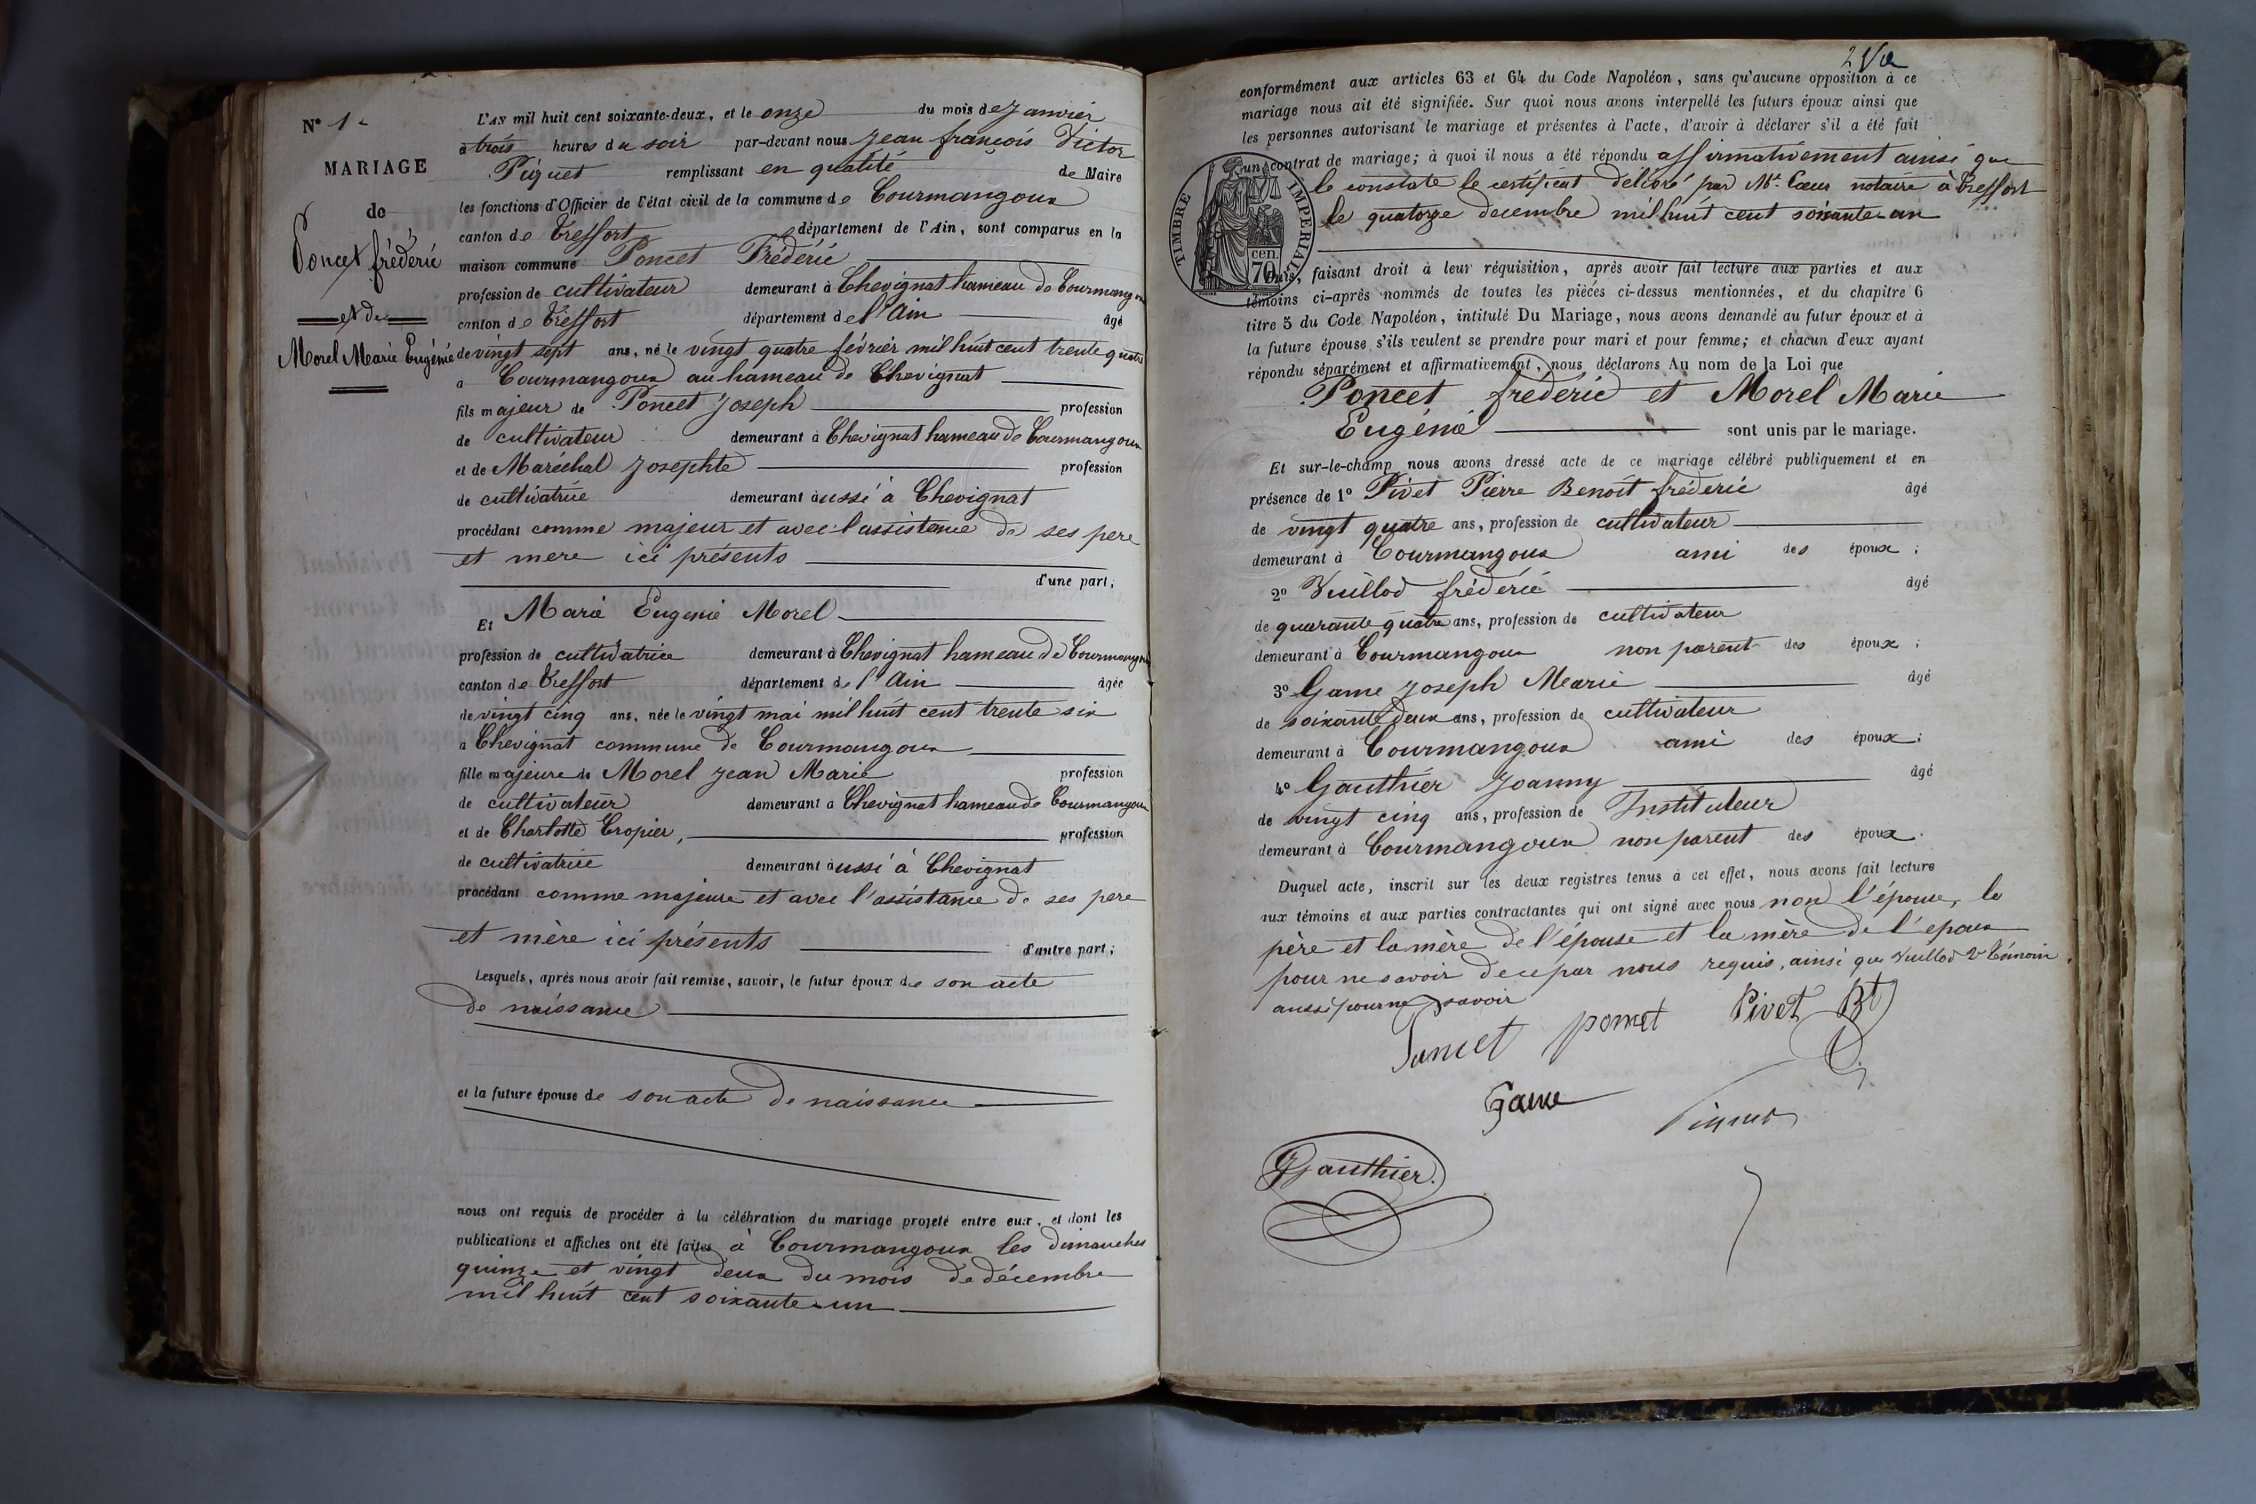 N° 1.
MARIAGE
de
Poncet frédéric
et de
Morel Marie Eugénie
L'AN mil huit cent soixante-deux, et le onze du mois de Janvier
à trois heures du soir par-devant nous Jean françois Victor
Piquet remplissant en qualité de Maire
les fonctions d'Officier de l'état civil de la commune de Courmangoux
canton de Treffort département de l'Ain, sont comparus en la
maison commune Poncet Frédéric
profession de cultivateur demeurant à Chevignat hameau de Courmangoux
canton de Treffort département de l'Ain âgé
de vingt sept ans, né le vingt quatre février mil huit cent trente quatre
a Courmangoux au hameau de Chevignat
fils majeur de Poncet Joseph profession
de cultivateur demeurant à Chevignat hameau de Courmangoux
et de Maréchal Josephte profession
de cultivatrice demeurant aussi à Chevignat
procédant comme majeur et avec l'assistance de ses pere
et mere ici présents
d'une part;
Et Marie Eugenie Morel
profession de cultivatrice demeurant à Chevignat hameau de Courmangoux
canton de Treffort département de l'Ain âgée
de vingt cinq ans, née le vingt mai mil huit cent trente six
a Chevignat commune de Courmangoux
fille majeure de Morel Jean Marie profession
de cultivateur demeurant a Chevignat hameau de Courmangoux
et de Charlotte Tropier, profession
de cultivatrice demeurant aussi à Chevignat
procédant comme majeure et avec l'assistance de ses pere
et mère ici présents d'autre part;
Lesquels, après nous avoir fait remise, savoir, le futur époux de son acte
de naissance
et la future épouse de son acte de naissance
nous ont requis de procéder à la célébration du mariage projeté entre eux, et dont les
publications et affiches ont été faites à Courmangoux les dimanches
quinze et vingt deux du mois de décembre
mil huit cent soixante-un
conformément aux articles 63 et 64 du Code Napoléon, sans qu'aucune opposition à ce
mariage nous ait été signifiée. Sur quoi nous avons interpellé les futurs époux ainsi que
les personnes autorisant le mariage et présentes à l'acte, d'avoir à déclarer s'il a été fait
un contrat de mariage; à quoi il nous a été répondu affirmativement ainsi que
le constate le certificat délivré par Mt. Cœur notaire à Treffort
le quatorze decembre mil huit cent soixante-un
TIMBRE IMPERIAL
cen.
70
Puis, faisant droit à leur réquisition, après avoir fait lecture aux parties et aux
témoins ci-après nommés de toutes les pièces ci-dessus mentionnées, et du chapitre 6
titre 5 du Code Napoléon, intitulé Du Mariage, nous avons demandé au futur époux et à
la future épouse s'ils veulent se prendre pour mari et pour femme; et chacun d'eux ayant
répondu séparément et affirmativement, nous déclarons Au nom de la Loi que
Poncet frédéric et Morel Marie
Eugénie sont unis par le mariage.
Et sur-le-champ nous avons dressé acte de ce mariage célébré publiquement et en
présence de 1° Pivet Pierre Benoit fréderic âgé
de vingt quatre ans, profession de cultivateur
demeurant à Courmangoux ami des époux;
2° Vuillod frédéric âgé
de quarante quatre ans, profession de cultivateur
demeurant à Courmangoux non parent des époux;
3° Game Joseph Marie âgé
de soixante deux ans, profession de cultivateur
demeurant à Courmangoux ami des époux;
4° Gauthier Joanny âgé
de vingt cinq ans, profession de Instituteur
demeurant à Courmangoux non parent des époux.
Duquel acte, inscrit sur les deux registres tenus à cet effet, nous avons fait lecture
aux témoins et aux parties contractantes qui ont signé avec nous non l'épouse, le
père et la mère de l'épouse et la mère de l'epoux
pour ne savoir de ce par nous requis, ainsi que Vuillod 2e témoin
aussi pour ne savoir
Poncet poncet Pivet Bt
Game Piquet
JGauthier.